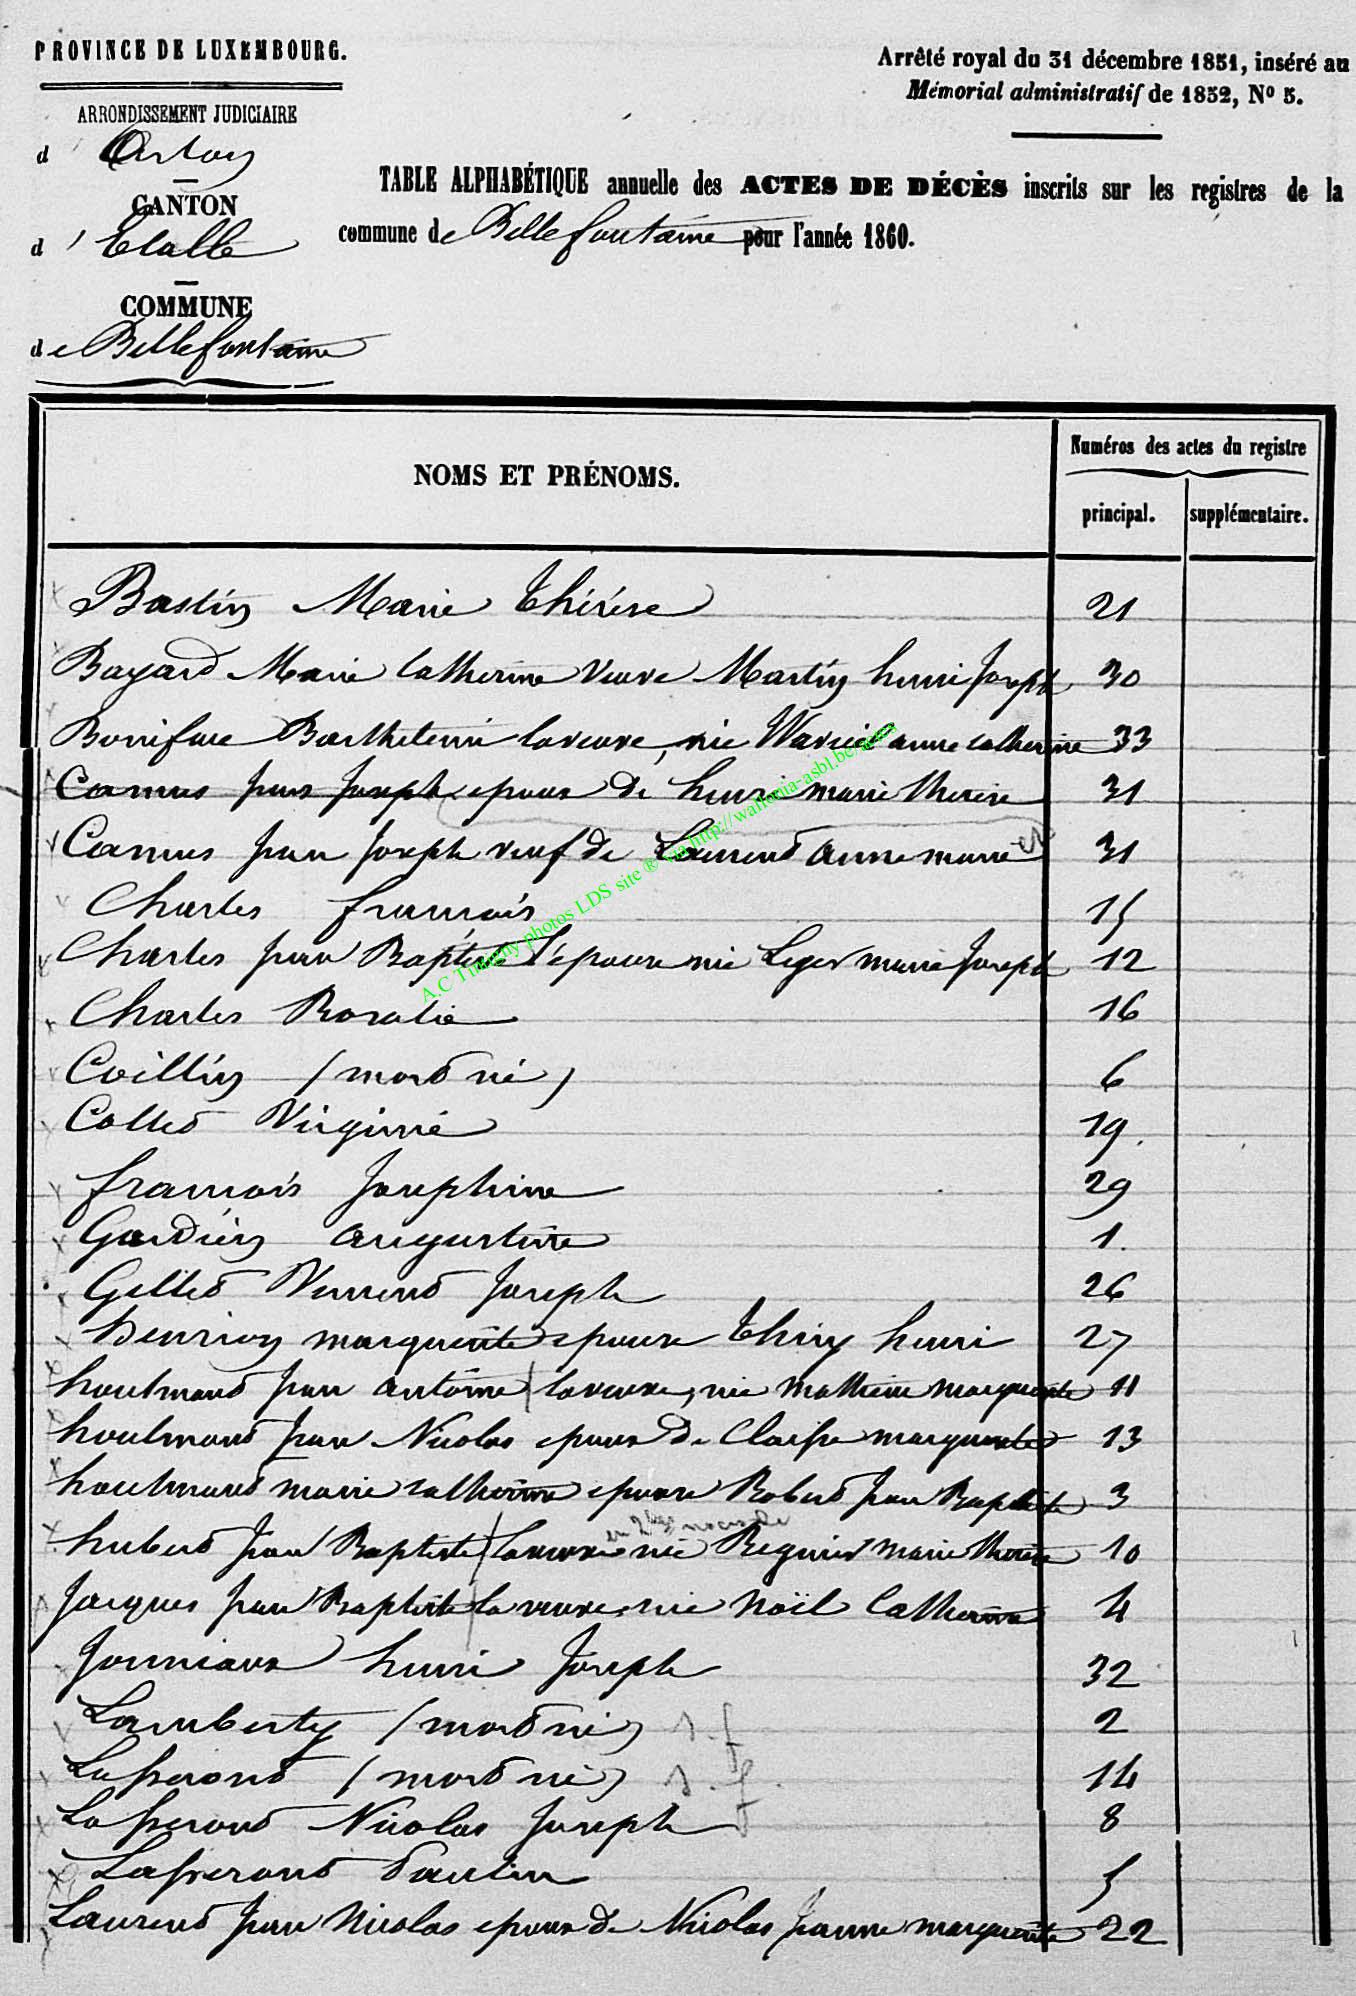 PROVINCE DE LUXEMBOURG.
Arrêté royal du 31 décembre 1851, inséré au
Mémorial administratif de 1852, No 5.
ARRONDISSEMENT JUDICIAIRE
d'Arlon
CANTON
d'Etalle
COMMUNE
de Bellefontaine
TABLE ALPHABÉTIQUE annuelle des ACTES DE DÉCÈS inscrits sur les registres de la
commune de Bellefontaine pour l'année 1860.
NOMS ET PRÉNOMS.
Numéros des actes du registre
principal. supplémentaire.
Bastin Marie Thérèse 21
Bayard Marie Catherine veuve Martin henri Joseph 30
Boniface Barthelemi la veuve, née Waricel anne catherine 33
Camus jean Joseph epoux de henri marie therese 31
Camus jean Joseph veuf de Laurent anne marie et 31
Charles françois 15
Charles jean Baptiste l'epouse née Leger marie Joseph 12
Charles Rosalie 16
Coillin (mort né) 6
Collet Virginie 19.
françois Josephine 29
Gardien augustine 1.
Gillet Vincent Joseph 26
henrion marguerite epouse Thiry henri 27
houlmont jean antoine la veuve, née mathieu marguerite 11
houlmont jean Nicolas epoux de Claisse marguerite 13
houlmont marie catherine epouse Robert jean Baptiste 3
en 2des noces de
hubert jean Baptiste la veuve née Regnier marie therese 10
Jacques jean Baptiste la veuve, née Noël Catherine 4
Jonniaux henri Joseph 32
Lamberty (mort né) s.f 2
Lafferont (mort né) s.f. 14
Lafferont Nicolas Joseph 8
Lafferont Paulin 5
Laurent jean Nicolas epoux de Nicolas jeanne marguerite 22
A.C Timigny photos LDS site ® via http://wallonia-asbl.be/actes